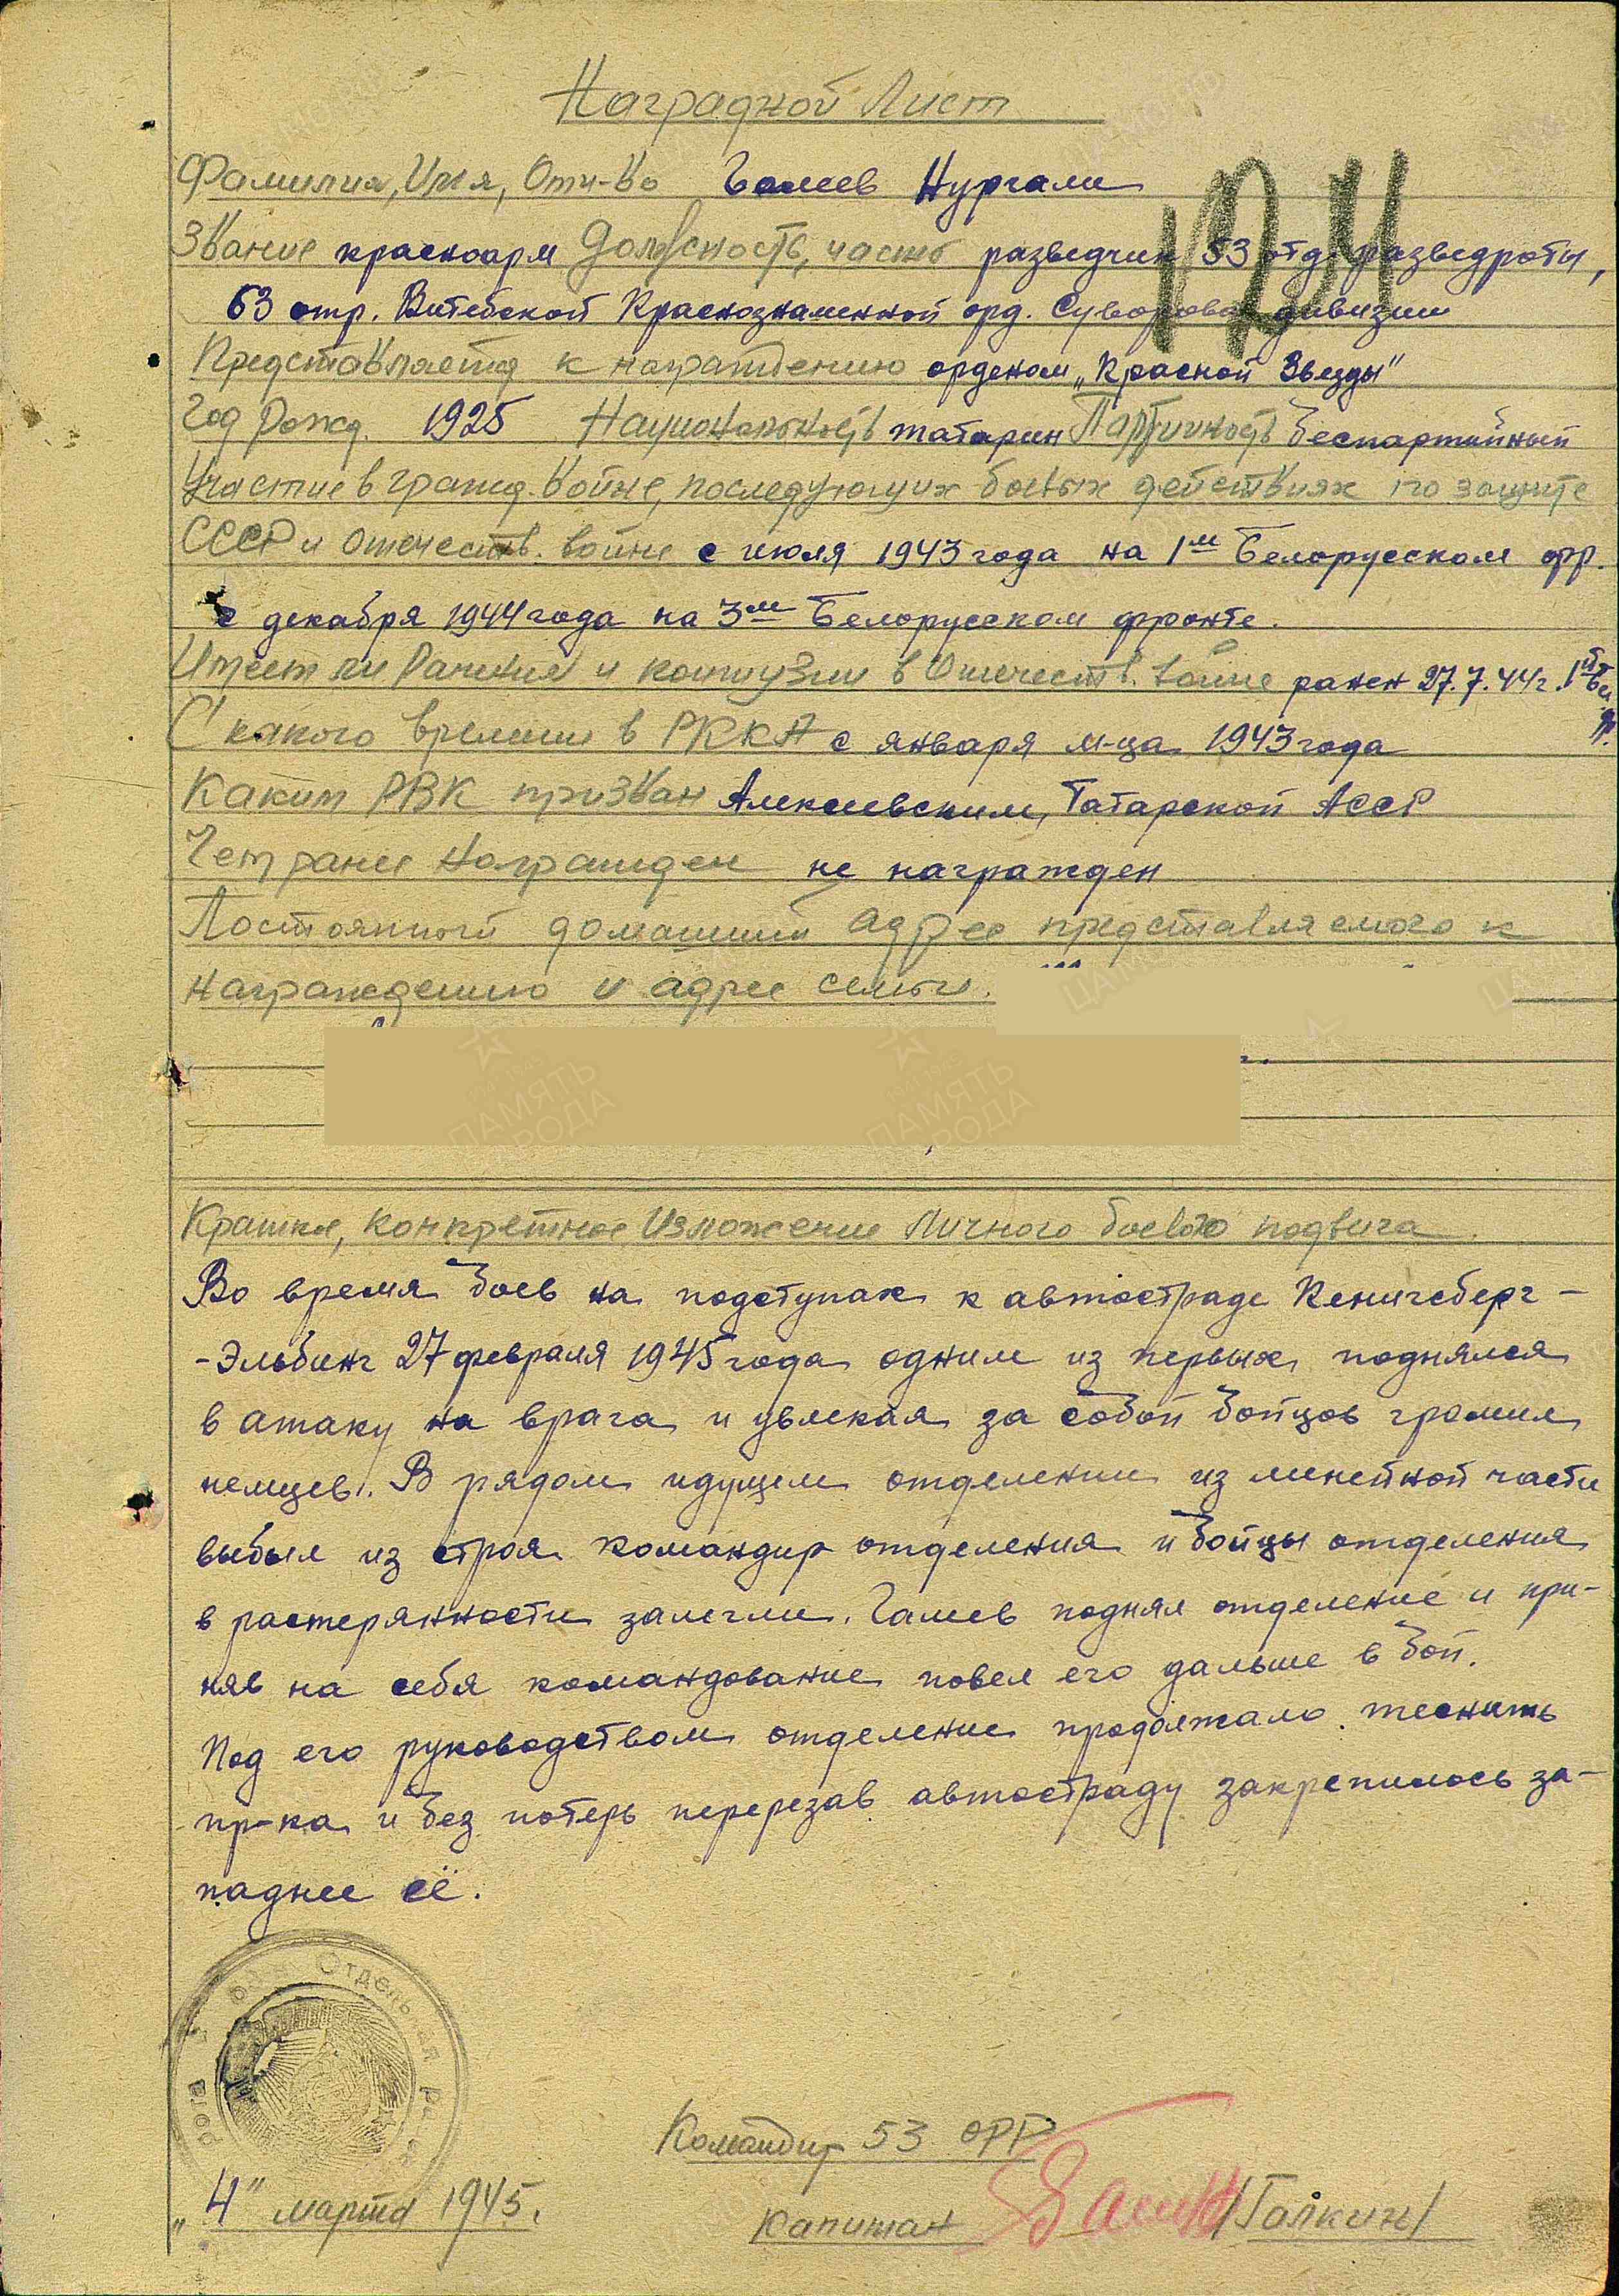 Наградной Лист
Фамилия, Имя, Отч-во Галеев Нургали
Звание красноарм Должность, часть разведчик 53 отд. разведроты,
63 стр. Витебской Краснознаменной орд. Суворова дивизии
Представляется к награждению орденом „Красной Звезды"
Год рожд. 1925 Национальность татарин Партийность беспартийный
Участие в гражд. войне, последующих боевых действиях по защите
СССР и отечеств. войне с июля 1943 года на 1м Белорусском фр.
с декабря 1944 года на 3м Белорусском фронте.
Имеет ли ранения и контузии в отечеств. войне ранен 27.7.44 г. 1й Бел. ф.
С какого времени в РККА с января м-ца 1943 года
Каким РВК призван Алексеевским, Татарской АССР
Чем ранее награжден не награжден
Постоянный домашний адрес представляемого к
награждению и адрес семьи.
Краткое, конкретное изложение личного боевого подвига
Во время боев на подступах к автостраде Кенигсберг –
– Эльбинг 27 февраля 1945 года одним из первых поднялся
в атаку на врага и увлекая за собой бойцов громил
немцев. В рядом идущем отделении из линейной части
выбыл из строя командир отделения и бойцы отделения
в растерянности залегли. Галеев поднял отделение и при-
няв на себя командование повел его дальше в бой.
Под его руководством отделение продолжало теснить
пр-ка и без потерь перерезав автостраду закрепилось за-
паднее её.
Отдельная
рота
Командир 53 ОРР
„4" марта 1945.
капитан /Галкин/